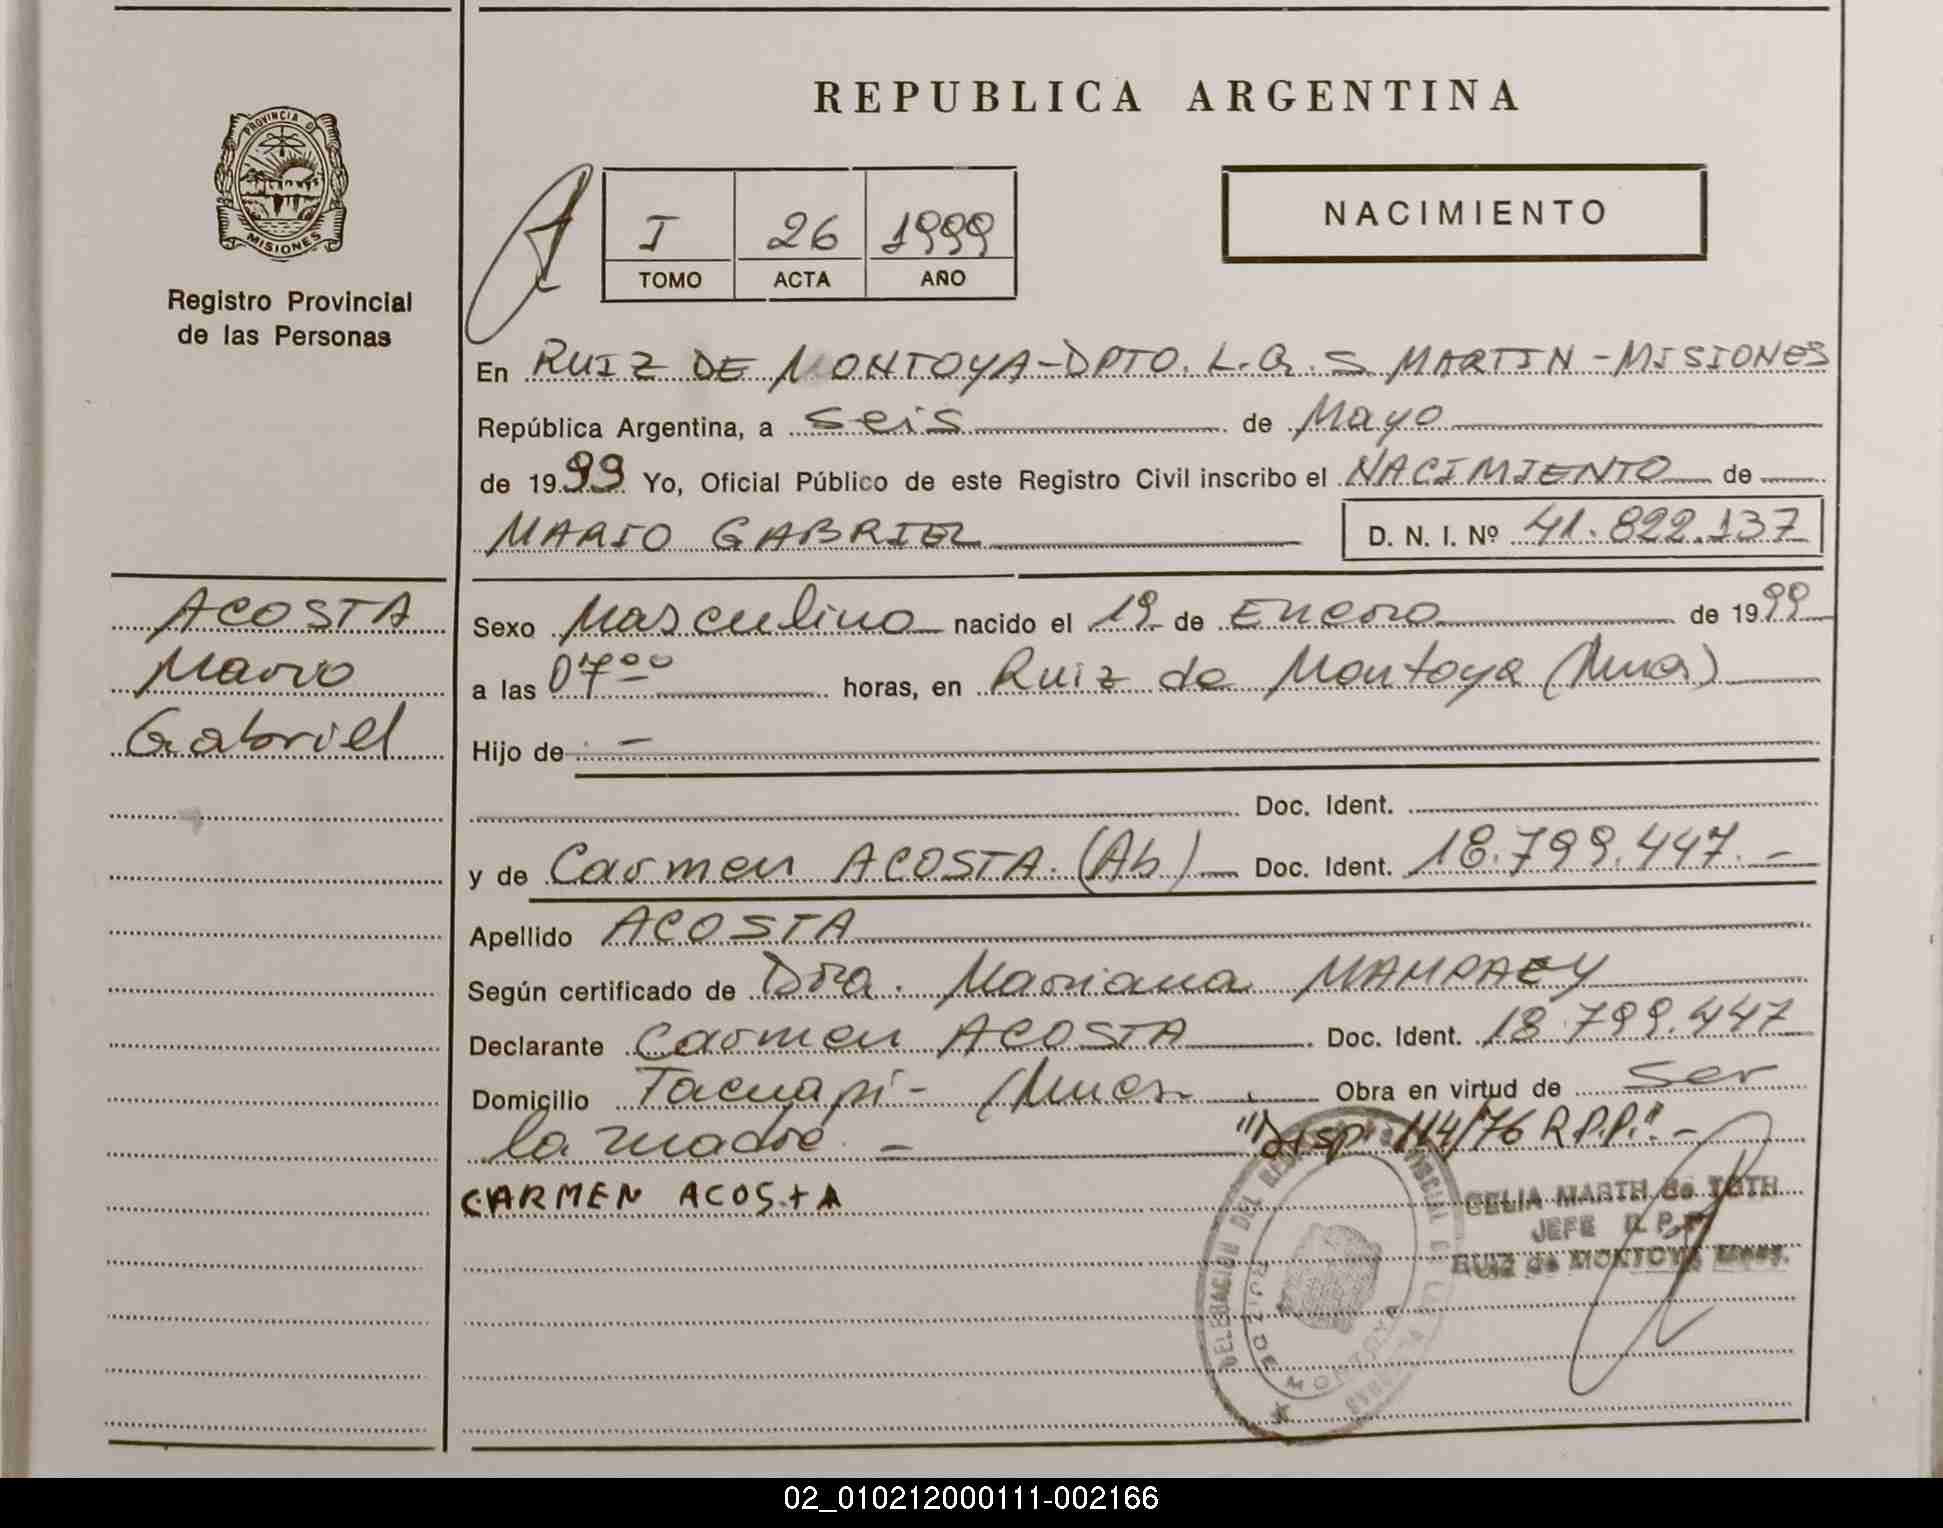 REPUBLICA ARGENTINA
PROVINCIA DE
MISIONES
Registro Provincial
de las Personas
I 26 1999
TOMO ACTA AÑO
NACIMIENTO
En RUIZ DE MONTOYA-DPTO. L.G.S MARTIN-MISIONES
República Argentina, a seis de Mayo
de 1999 Yo, Oficial Público de este Registro Civil inscribo el NACIMIENTO de
MARIO GABRIEL D. N. I. Nº 41.822.137
ACOSTA
Mario
Gabriel
Sexo Masculino nacido el 19 de Enero de 1999
a las 07⁰⁰ horas, en Ruiz de Montoya (Mnes)
Hijo de -
Doc. Ident.
y de Carmen ACOSTA. (Ab) Doc. Ident. 18.799.447.-
Apellido ACOSTA
Según certificado de Dra. Mariana MAMPAEY
Declarante Carmen ACOSTA Doc. Ident. 18.799.447
Domicilio Tacuapi- Mnes. Obra en virtud de ser
la madre. - "Disp. 114/76 R.P.P." -
CARMEN ACOSTA
CELIA MARTH de TOTH
JEFE R. P. P.
RUIZ de MONTOYA Mnes.
DELEGACION DEL
RUIZ DE MONTOYA
02_010212000111-002166